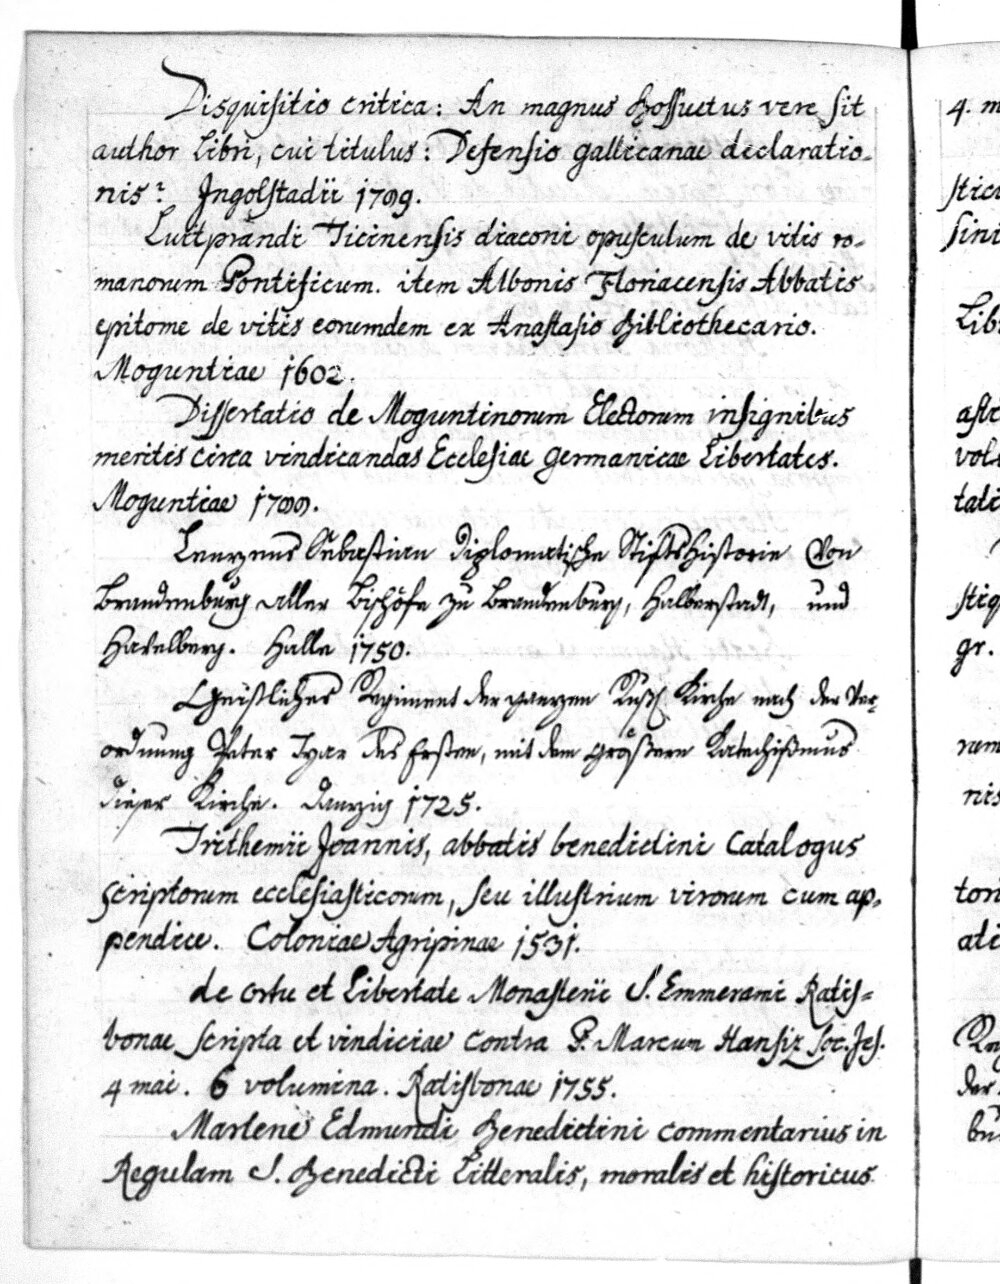 Disquisitio critica: An magnus Bossuetus vere sit
author Libri, cui titulus: Defensio gallicanae declaratio-
nis? Ingolstadii 1799.
Luitprandi Ticinensis diaconi opusculum de vitis ro-
manorum Pontificum. item Albonis Floriacensis Abbatis
epitome de vitis eorumdem ex Anastasio Bibliothecario.
Moguntiae 1602.
Dissertatio de Moguntinorum Electorum insignibus
meritis circa vindicandas Ecclesiae Germanicae Libertates.
Moguntiae 1799.
Lenzens Sebastian diplomatische Stiftshistorie von
Brandenburg aller Bischöfe zu Brandenburg, Halberstadt, und
Havelberg. Halle 1750.
Geistliches Regiment der ganzen Russ. Kirche nach der Ver-
ordnung Peter Tzar des Ersten, mit dem grösseren Katechismus
dieser Kirche. Danzig 1725.
Trithemii Joannis, abbatis benedictini Catalogus
scriptorum ecclesiasticorum, seu illustrium virorum cum ap-
pendice. Coloniae Agripinae 1531.
de ortu et Libertate Monasterii S. Emmerami Ratis-
bonae scripta et vindiciae contra P. Marcum Hansiz Soc. Jes.
4 mai. 6 volumina. Ratisbonae 1755.
Martene Edmundi Benedictini commentarius in
Regulam S. Benedicti Litteralis, moralis et historicus